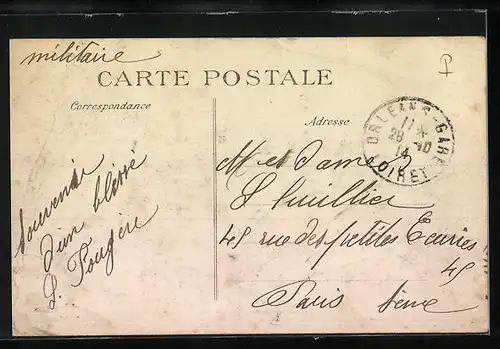 militaire
CARTE POSTALE
Correspondance
Adresse
ORLEANS-GARE
11 *
28 -10
14
LOIRET
Souvenir
d'un blessé
L. Fougère
M et Dame
L'huillier
45 rue des petites Ecuries
45
Paris Seine